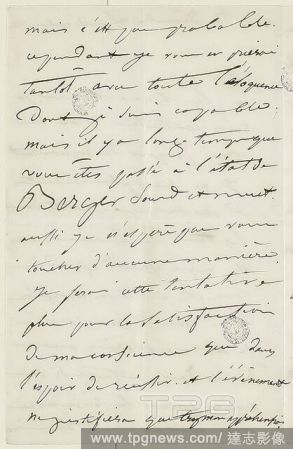 mais c'est peu probable.
cependant je vous en prierai
tantôt avec toute l'éloquence
dont je suis capable.
mais il y a longtemps que
vous êtes passé à l'état de
Berger sourd et muet.
aussi je n'espère pas vous
toucher d'aucune manière.
je ferai cette tentative
plus pour la satisfaction
de ma conscience que dans
l'espoir de réussir. et l'événement
ne justifiera que trop mon appréhension
TPG
www.tpgnews.com/達志影像